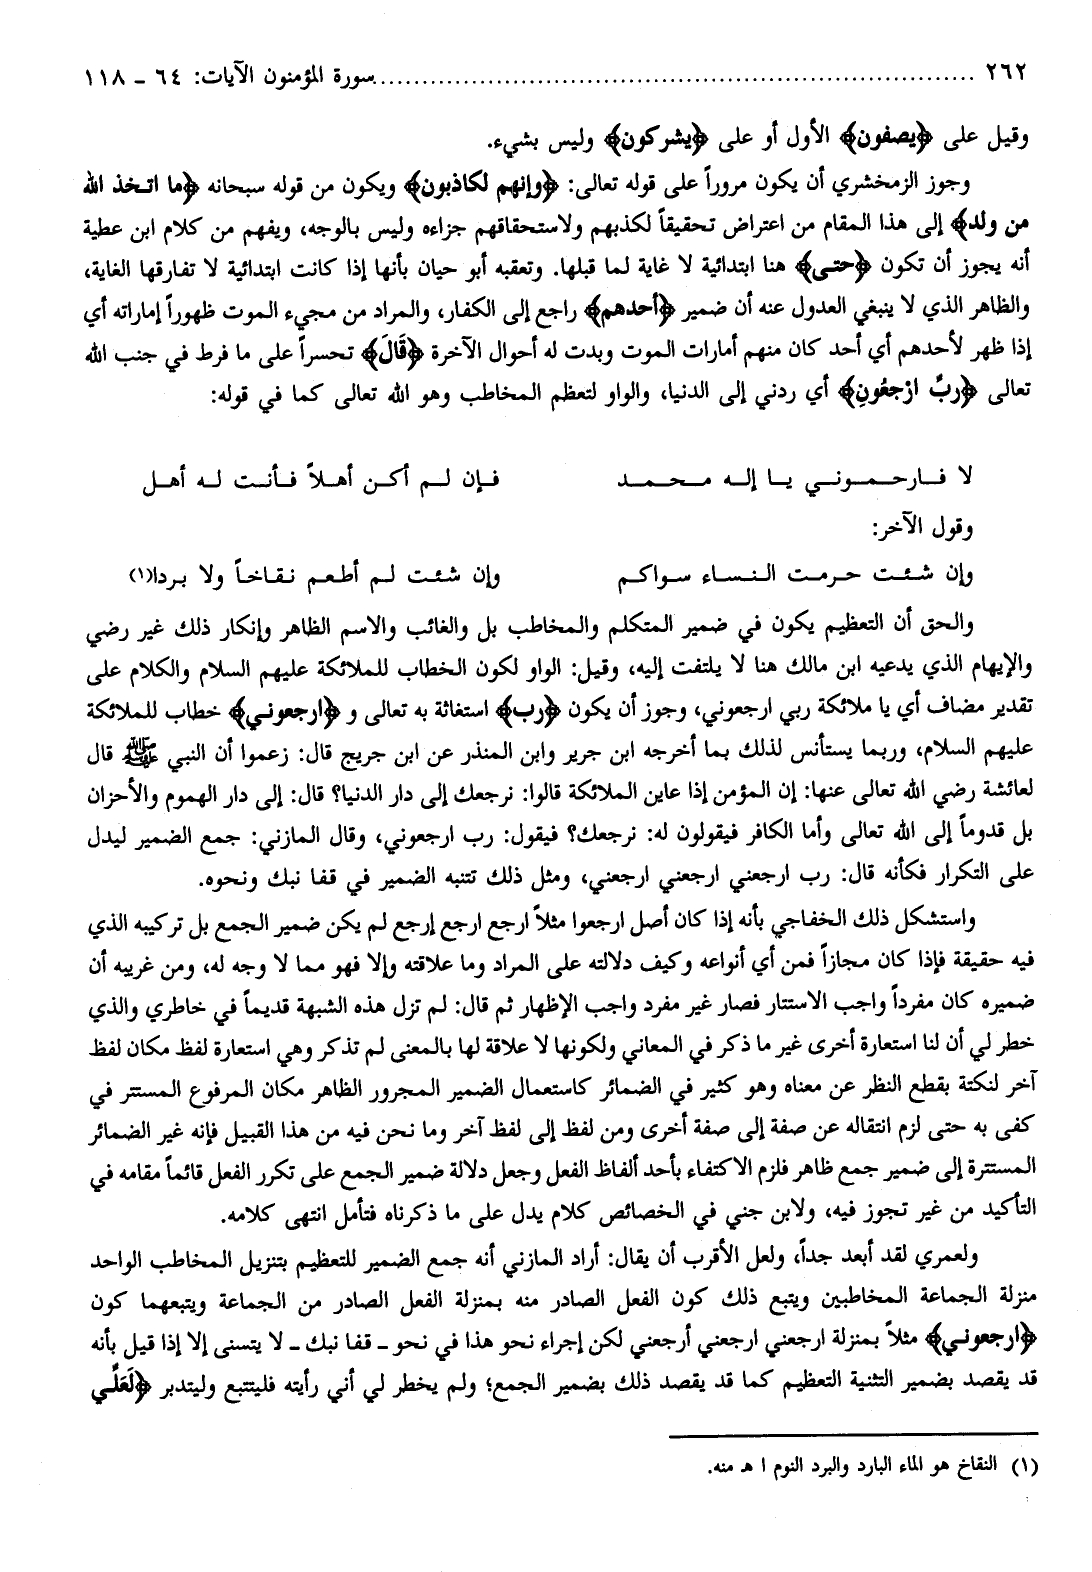 ٢٦٢ ........................................................................ سورة المؤمنون الآيات: ٦٤ ـ ١١٨
وقيل على ﴿يصفون﴾ الأول أو على ﴿يشركون﴾ وليس بشيء.
وجوز الزمخشري أن يكون مروراً على قوله تعالى: ﴿وإنهم لكاذبون﴾ ويكون من قوله سبحانه ﴿ما اتخذ الله
من ولد﴾ إلى هذا المقام من اعتراض تحقيقاً لكذبهم ولاستحقاقهم جزاءه وليس بالوجه، ويفهم من كلام ابن عطية
أنه يجوز أن تكون ﴿حتى﴾ هنا ابتدائية لا غاية لما قبلها. وتعقبه أبو حيان بأنها إذا كانت ابتدائية لا تفارقها الغاية،
والظاهر الذي لا ينبغي العدول عنه أن ضمير ﴿أحدهم﴾ راجع إلى الكفار، والمراد من مجيء الموت ظهوراً إماراته أي
إذا ظهر لأحدهم أي أحد كان منهم أمارات الموت وبدت له أحوال الآخرة ﴿قَالَ﴾ تحسراً على ما فرط في جنب الله
تعالى ﴿ربِّ ارْجعُونِ﴾ أي ردني إلى الدنيا، والواو لتعظم المخاطب وهو الله تعالى كما في قوله:
لا فـارحـمـونـي يـا إلـه مـحـمـد     فـإن لـم أكـن أهـلاً فـأنـت لـه أهـل
وقول الآخر:
وإن شـئـت حـرمـت الـنـسـاء سـواكـم     وإن شـئـت لـم أطـعـم نـقـاخـاً ولا بـردا(١)
والحق أن التعظيم يكون في ضمير المتكلم والمخاطب بل والغائب والاسم الظاهر وإنكار ذلك غير رضي
والإيهام الذي يدعيه ابن مالك هنا لا يلتفت إليه، وقيل: الواو لكون الخطاب للملائكة عليهم السلام والكلام على
تقدير مضاف أي يا ملائكة ربي ارجعوني، وجوز أن يكون ﴿رب﴾ استغاثة به تعالى و ﴿ارجعوني﴾ خطاب للملائكة
عليهم السلام، وربما يستأنس لذلك بما أخرجه ابن جرير وابن المنذر عن ابن جريج قال: زعموا أن النبي ﷺ قال
لعائشة رضي الله تعالى عنها: إن المؤمن إذا عاين الملائكة قالوا: نرجعك إلى دار الدنيا؟ قال: إلى دار الهموم والأحزان
بل قدوماً إلى الله تعالى وأما الكافر فيقولون له: نرجعك؟ فيقول: رب ارجعوني، وقال المازني: جمع الضمير ليدل
على التكرار فكأنه قال: رب ارجعني ارجعني ارجعني، ومثل ذلك تتنبه الضمير في قفا نبك ونحوه.
واستشكل ذلك الخفاجي بأنه إذا كان أصل ارجعوا مثلاً ارجع ارجع إرجع لم يكن ضمير الجمع بل تركيبه الذي
فيه حقيقة فإذا كان مجازاً فمن أي أنواعه وكيف دلالته على المراد وما علاقته وإلا فهو مما لا وجه له، ومن غريبه أن
ضميره كان مفرداً واجب الاستتار فصار غير مفرد واجب الإظهار ثم قال: لم تزل هذه الشبهة قديماً في خاطري والذي
خطر لي أن لنا استعارة أخرى غير ما ذكر في المعاني ولكونها لا علاقة لها بالمعنى لم تذكر وهي استعارة لفظ مكان لفظ
آخر لنكتة بقطع النظر عن معناه وهو كثير في الضمائر كاستعمال الضمير المجرور الظاهر مكان المرفوع المستتر في
كفى به حتى لزم انتقاله عن صفة إلى صفة أخرى ومن لفظ إلى لفظ آخر وما نحن فيه من هذا القبيل فإنه غير الضمائر
المستترة إلى ضمير جمع ظاهر فلزم الاكتفاء بأحد ألفاظ الفعل وجعل دلالة ضمير الجمع على تكرر الفعل قائماً مقامه في
التأكيد من غير تجوز فيه، ولابن جني في الخصائص كلام يدل على ما ذكرناه فتأمل انتهى كلامه.
ولعمري لقد أبعد جداً، ولعل الأقرب أن يقال: أراد المازني أنه جمع الضمير للتعظيم بتنزيل المخاطب الواحد
منزلة الجماعة المخاطبين ويتبع ذلك كون الفعل الصادر منه بمنزلة الفعل الصادر من الجماعة ويتبعهما كون
﴿ارجعوني﴾ مثلاً بمنزلة ارجعني ارجعني أرجعني لكن إجراء نحو هذا في نحو ـ قفا نبك ـ لا يتسنى إلا إذا قيل بأنه
قد يقصد بضمير التثنية التعظيم كما قد يقصد ذلك بضمير الجمع؛ ولم يخطر لي أني رأيته فليتتبع وليتدبر ﴿لَعَلِّي
(١) النقاخ هو الماء البارد والبرد النوم ا هـ منه.